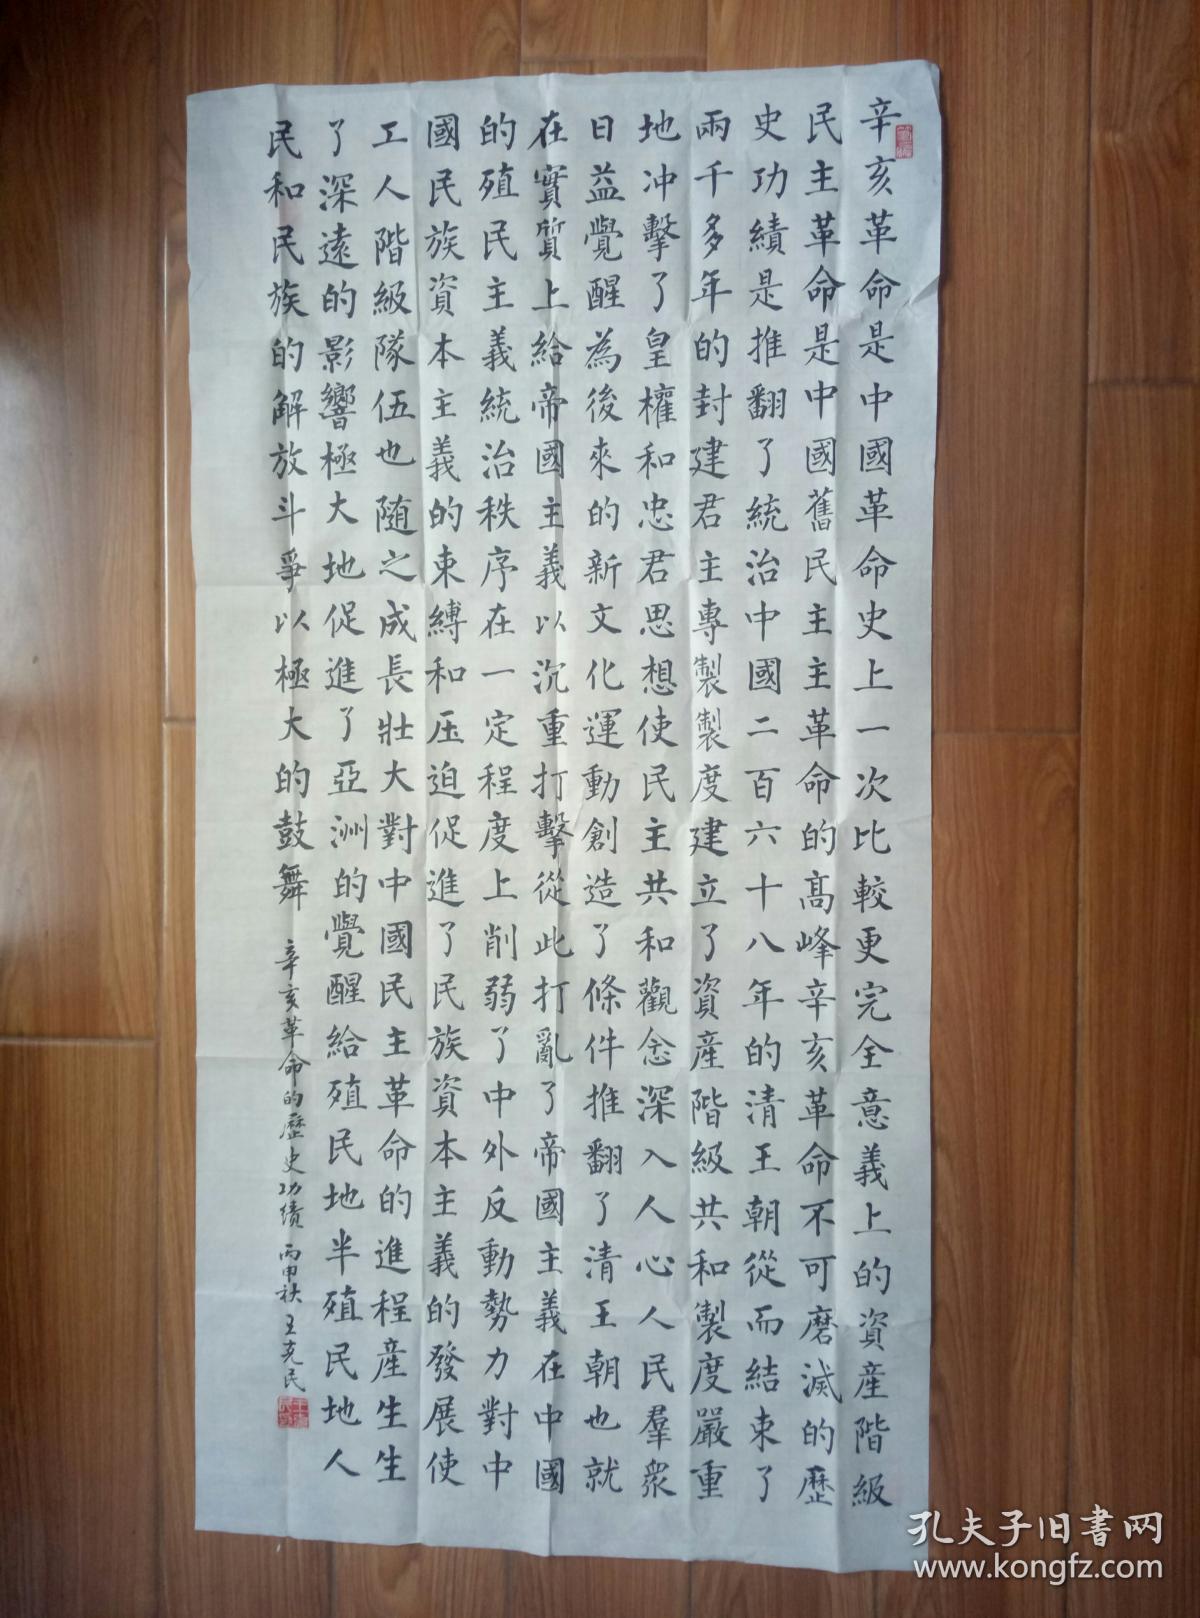 辛亥革命是中國革命史上一次比較更完全意義上的資産階級
民主革命是中國舊民主主革命的高峰辛亥革命不可磨滅的歷
史功績是推翻了統治中國二百六十八年的清王朝從而結束了
兩千多年的封建君主專製製度建立了資産階級共和製度嚴重
地冲擊了皇權和忠君思想使民主共和觀念深入人心人民羣衆
日益覺醒為後來的新文化運動創造了條件推翻了清王朝也就
在實質上給帝國主義以沉重打擊從此打亂了帝國主義在中國
的殖民主義統治秩序在一定程度上削弱了中外反動勢力對中
國民族資本主義的束縛和压迫促進了民族資本主義的發展使
工人階級隊伍也随之成長壯大對中國民主革命的進程産生生
了深遠的影響極大地促進了亞洲的覺醒給殖民地半殖民地人
民和民族的解放斗爭以極大的鼓舞
辛亥革命的歷史功績 丙申秋 王克民
孔夫子旧書网
www.kongfz.com